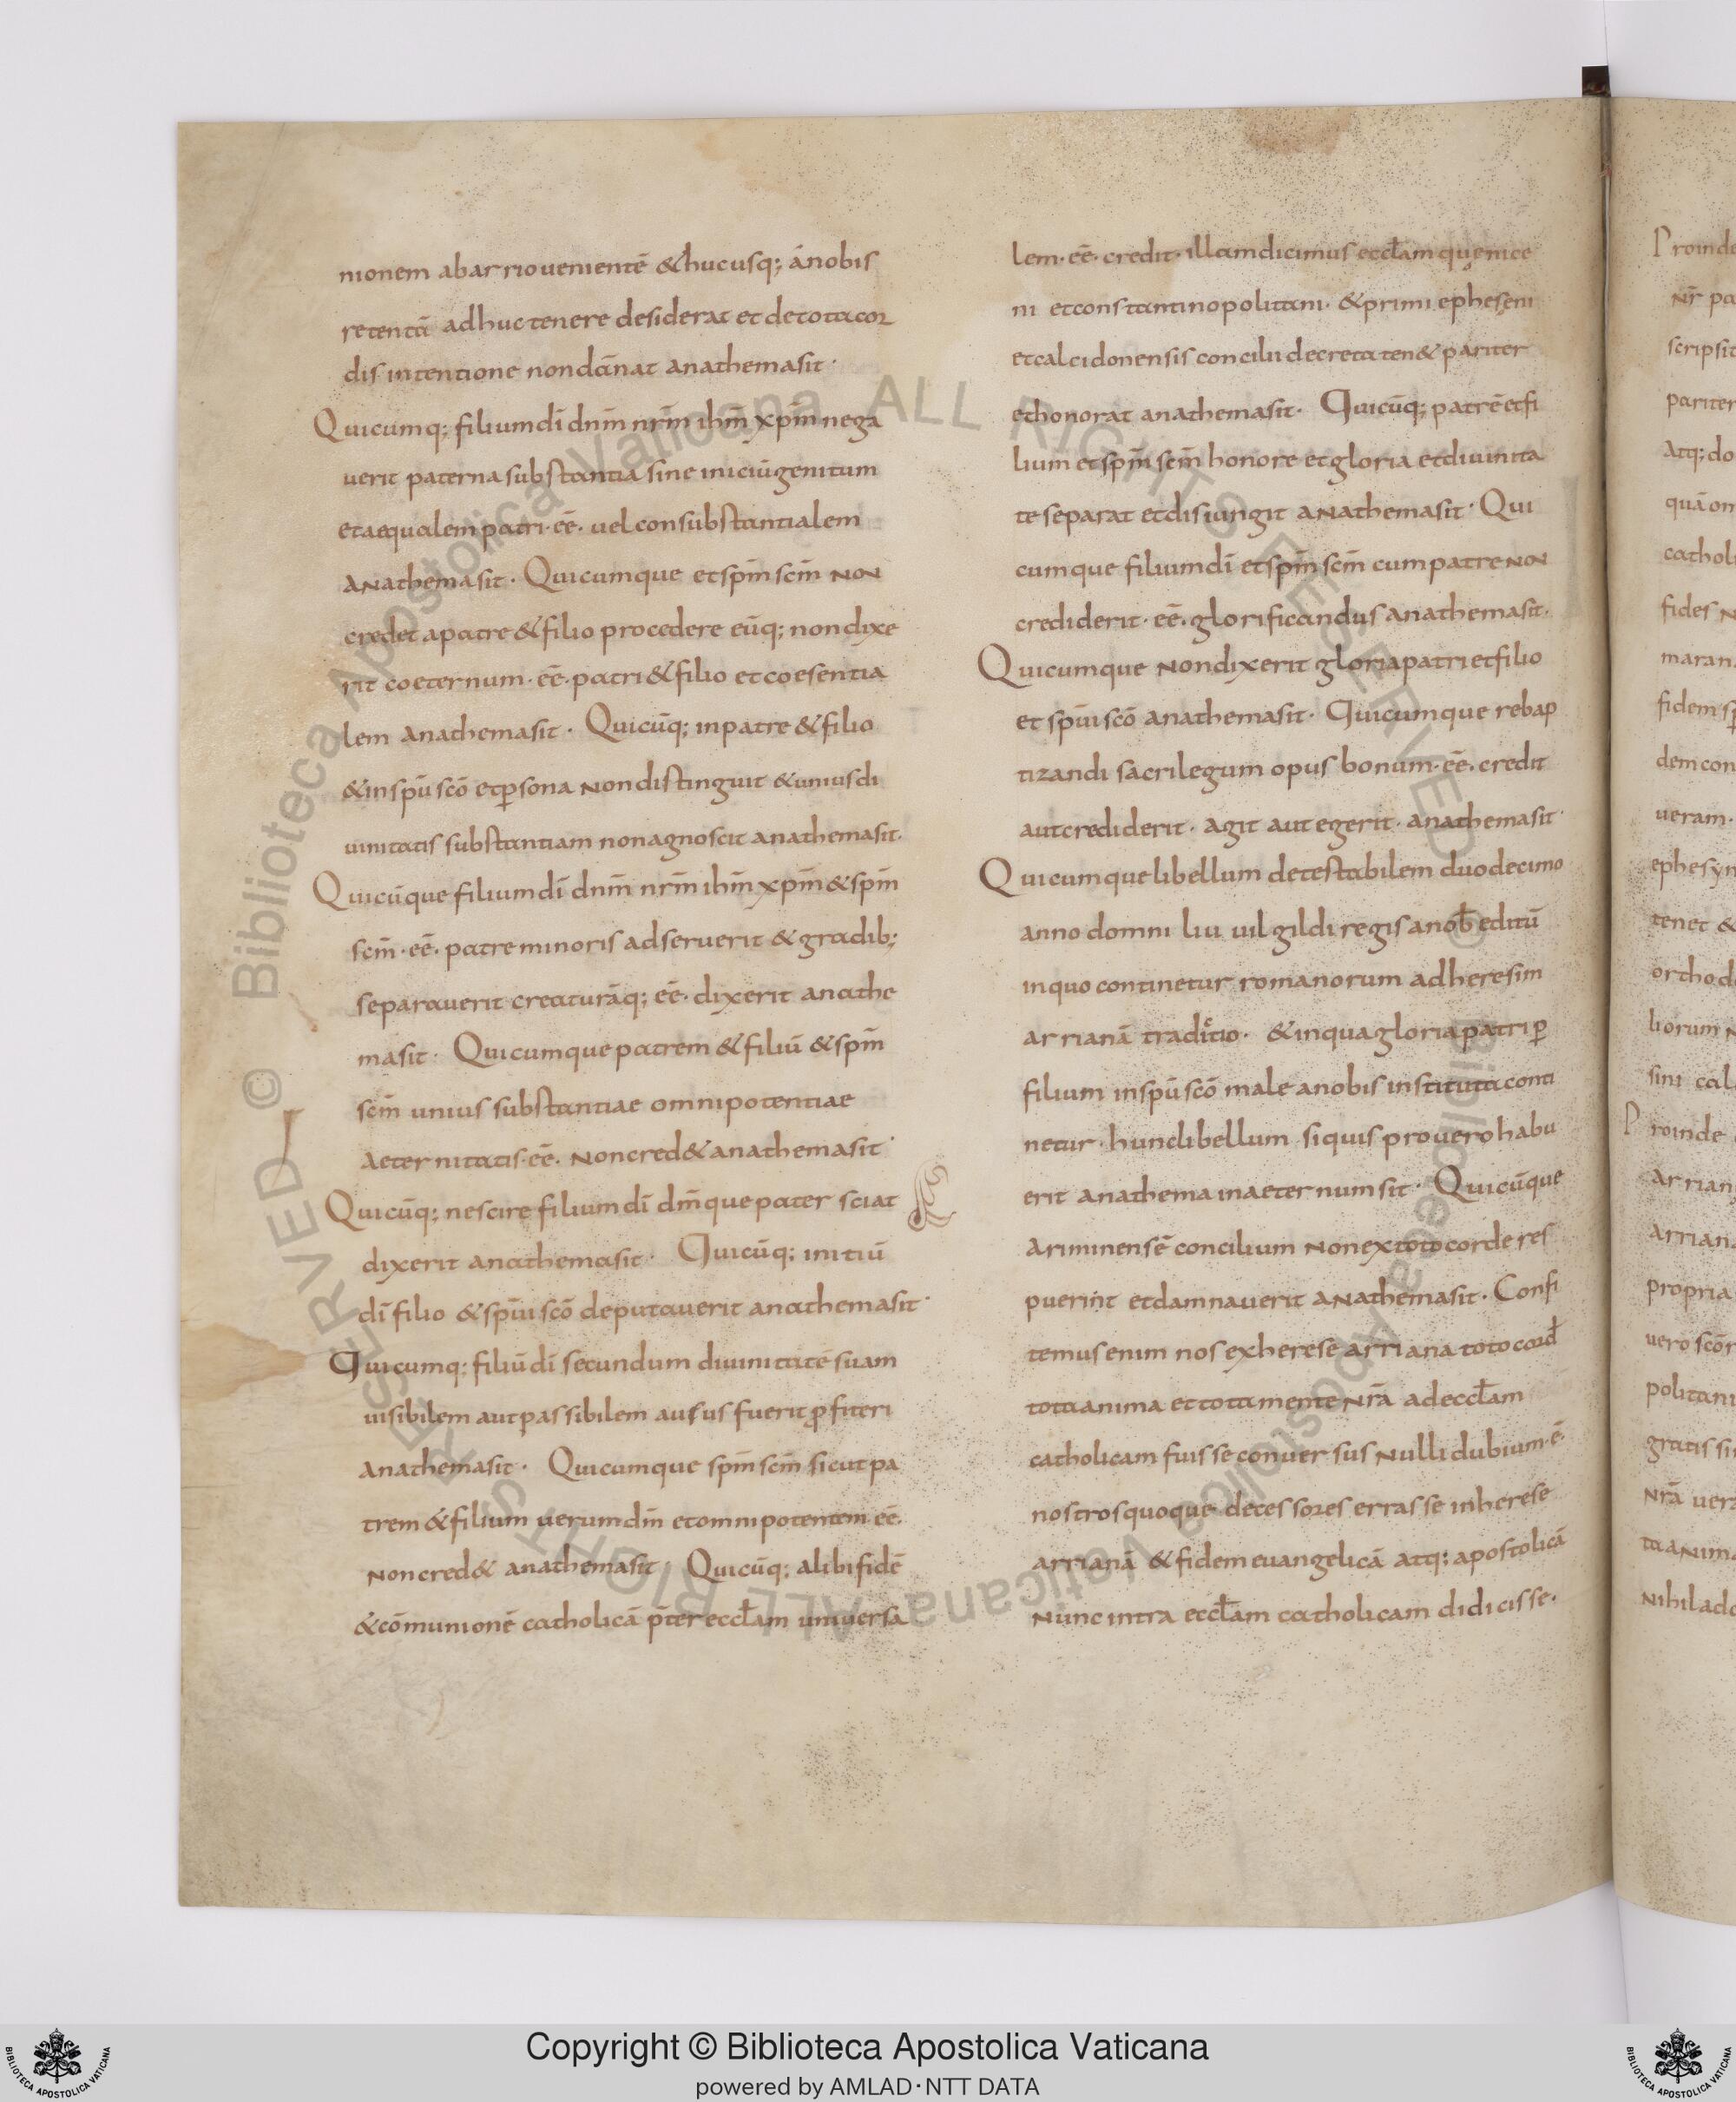 nionem abarriouenientē &hucusq; ánobis
retentā adhuc tenere desiderat et detotacor
dis intentione nondānat anathemasit·
Quicumq; filiumdī dnm̄ nrm̄ ihm̄ xpm̄ nega
uerit paterna substantia sine iniciūgenitum
etaequalem patri·eē· uel consubstantialem
anathemasit· Quicumque etspm̄ scm̄ non
credet apatre &filio procedere eūq; nondixe
rit coeternum·eē·patri&filio et coesentia
lem anathemasit· Quicūq; inpatre &filio
&inspū scō etꝑsona nondistinguit &uniusdi
uinitatis substantiam nonagnoscit anathemasit·
Quicūque filiumdī dnm̄ nrm̄ ihm̄ xpm̄ &spm̄
scm̄·eē· patreminoris adseruerit &gradib;
separauerit creaturāq; eē· dixerit anathe
masit· Quicumque patrem &filiū &spm̄
scm̄ unius substantiae omnipotentiae
aeternitatis·eē· noncred& anathemasit·
Quicūq; nescire filiumdī dm̄quepater sciat
dixerit anathemasit· Quicūq; initiū
dī filio &spūi scō deputauerit anathemasit·
Quicumq; filiūdī secundum diuinitatē suam
uisibilem autpassibilem ausus fuerit ꝓfiteri
anathemasit· Quicumque spm̄ scm̄ sicutpa
trem &filium uerumdm̄ etomnipotentem eē·
noncred& anathemasit· Quicūq; alibifidē
&cōmunionē catholicā p̄ter eccl̄am uniuersa
lem·eē·credit· illamdicimus eccl̄am quę nice
ni etconstantinopolitani· &primi ephesęni
etcalcidonensis concilii decreta ten& pariter
ethonorat anathemasit· Quicūq; patrēetfi
lium etspm̄ scm̄ honore etgloria etdiuinita
te separat etdisiungit anathemasit· Qui
cumque filiumdī etspm̄ scm̄ cumpatre non
crediderit·eē·glorificandus anathemasit·
Quicumque nondixerit gloriapatri etfilio
et spūi scō anathemasit· Quicumque rebap
tizandi sacrilegum opus bonum·eē·credit
autcrediderit· agit aut egerit· anathemasit·
Quicumque libellum detestabilem duodecimo
anno domni liu uilgildi regis anob̄ editū
inquo continetur romanorum adheresim
arrianā traditio· &inquagloriapatri ꝑ
filium inspū scō male anobis instituta conti
netur·hunclibellum siquis prouero habu
erit anathema inaeternumsit· Quicūque
ariminensē concilium nonextoto corde res
puerint etdamnauerit anathemasit· Confi
temusenim nos exherese arriana toto cord̄
totaanima et totamente nrā adeccl̄am
catholicam fuisse conuersus nulli dubium·ē·
nostrosquoque decessores errasse inherese
arrianā &fidem euangelicā atq; apostolicā
nunc intra eccl̄am catholicam didicisse·
Proinde
nr̄ pa
scripsit
pariter
atq; do
quā om
fides n
fidem sp
dem con
ueram·
tenet &
orthod
liorum n
sini cal
Proinde
arrian
arriana
propria
uero scōr
politani
gratis si
nrā uera
taanima
nihilado
Copyright © Biblioteca Apostolica Vaticana
powered by AMLAD·NTT DATA